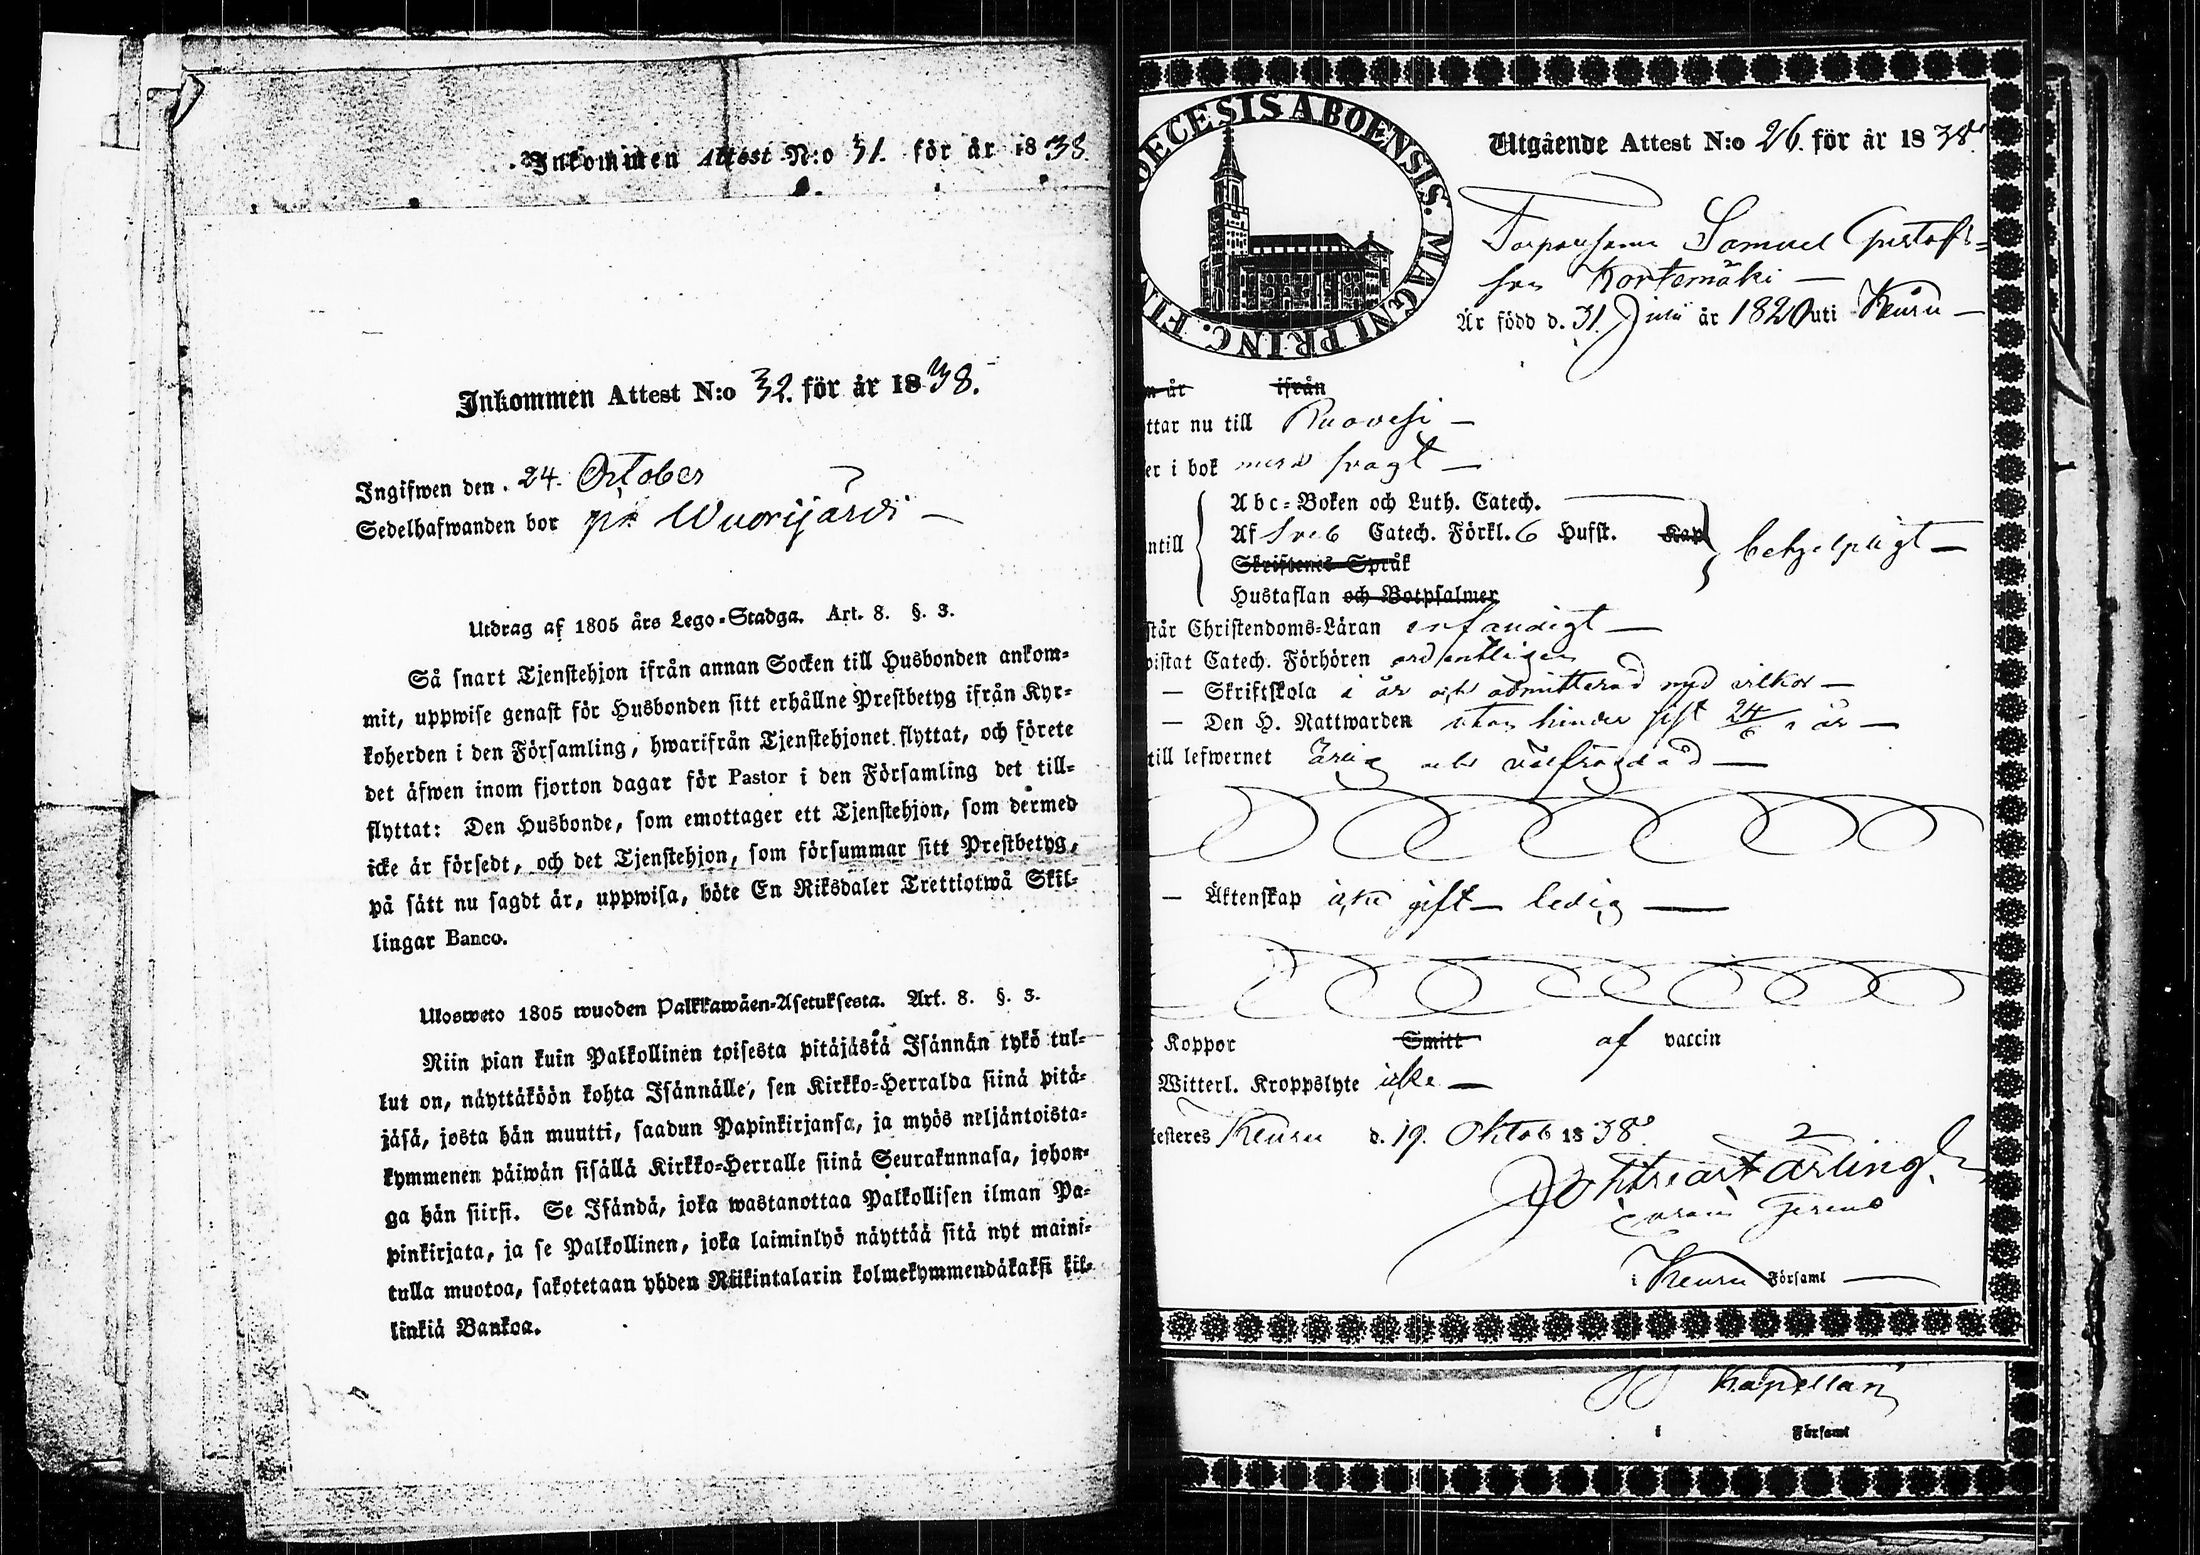 Inkommen Attest N:o 31. för år 1838.
Inkommen Attest N:o 32. för år 1838.
Ingifwen den. 24. October
Sedelhafwanden bor på Wuorijärvi —
Utdrag af 1805 års Lego-Stadga. Art. 8. §. 3.
Så snart Tjenstehjon ifrån annan Socken till Husbonden ankom-
mit, uppwise genast för Husbonden sitt erhållne Prestbetyg ifrån Kyr-
koherden i den Församling, hwarifrån Tjenstehjonet flyttat, och förete
det äfwen inom fjorton dagar för Pastor i den Församling det till-
flyttat: Den Husbonde, som emottager ett Tjenstehjon, som dermed
icke är försedt, och det Tjenstehjon, som försummar sitt Prestbetyg,
på sätt nu sagdt är, uppwisa, böte En Riksdaler Trettiotwå Skil-
lingar Banco.
Ulosweto 1805 wuoden Palkkawäen-Asetuksesta. Art. 8. §. 3.
Niin pian kuin Palkollinen toisesta pitäjästä Isännän tykö tul-
lut on, näyttäköön kohta Isännälle, sen Kirkko-Herralda siinä pitä-
jäsä, josta hän muutti, saadun Papinkirjansa, ja myös neljäntoista-
kymmenen päiwän sisällä Kirkko-Herralle siinä Seurakunnasa, johon-
ga hän siirsi. Se Isändä, joka wastanottaa Palkollisen ilman Pa-
pinkirjata, ja se Palkollinen, joka laiminlyö näyttää sitä nyt maini-
tulla muotoa, sakotetaan yhden Riikintalarin kolmekymmendäkaksi kil-
linkiä Bankoa.
OECESIS ABOENSIS. MAGNI PRINC. FIN
Utgående Attest N:o 26. för år 1838.
Samuel Gustafs-
son Kortemäki —
Är född d. 31. Juli år 1820 uti Keuru —
n år ifrån
ttar nu till Ruovesi —
er i bok med svagt —
Abc-Boken och Luth. Catech.
ntill Af Sveb Catech. Förkl. 6 Hufst. Kap
Skriftenes Språk
behjelpligt —
Hustaflan och Botpsalmer
står Christendoms-Läran enfaudigt —
vistat Catech. Förhören ordentligen
— Skriftskola i år och admitterad med vilkor —
— Den H. Nattwarden utan hinder sist 24/6 i år —
till lefwernet ärlig och välfrägdad —
— Äktenskap icke gift — ledig —
Koppor Smitt af vaccin
Witterl. Kroppslyte icke —
testeres Keuru d. 19. Oktob 1838.
i Keuru Församl —
Kapellan
i Församl